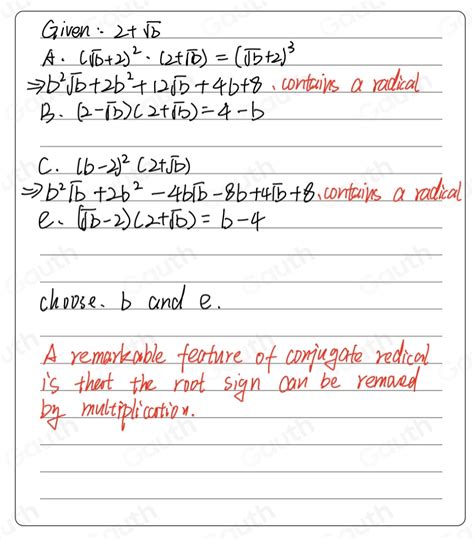 Given:- 2+√b
A. (√b+2)²·(2+√b)=(√b+2)³
⇒b²√b+2b²+12√b+4b+8、contains a radical
B. (2-√b)(2+√b)=4-b
C. (b-2)²(2+√b)
⇒b²√b+2b²-4b√b-8b+4√b+8、contains a radical
e. (√b-2)(2+√b)=b-4
choose. b and e.
A remarkable fearture of conjugate redical
is thert the root sign can be removed
by multiplication.